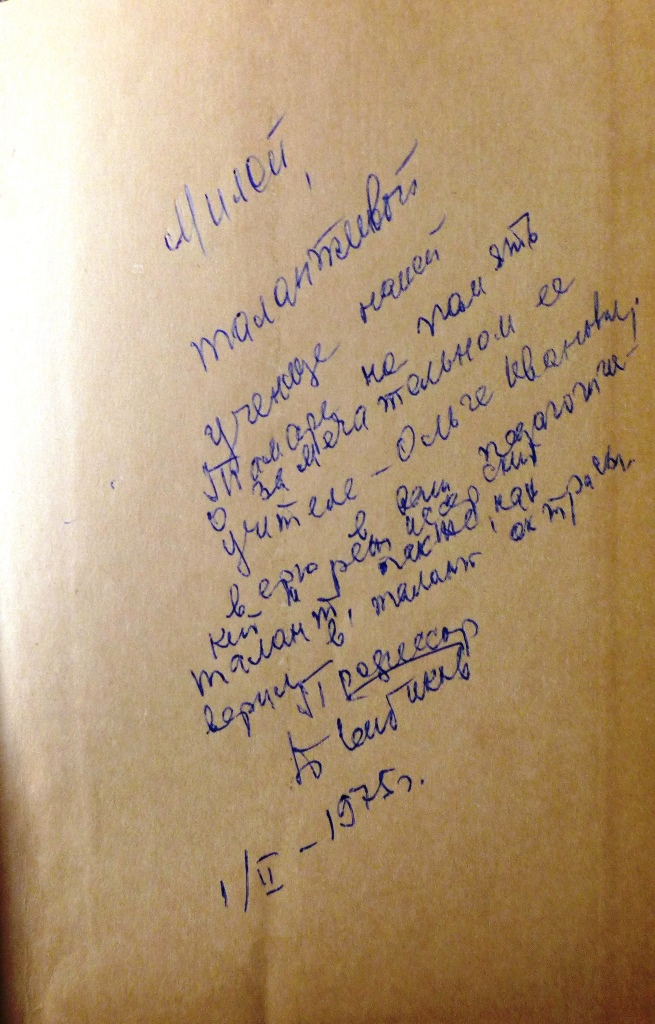 Милой,
талантливой
ученице нашей
Тамаре на память
о замечательном ее
учителе – Ольге Ивановне.
верю в Ваш педагогиче-
кий и режиссерский
талант также, как
верил в талант актрисы.
Профессор
1/II – 1975г.